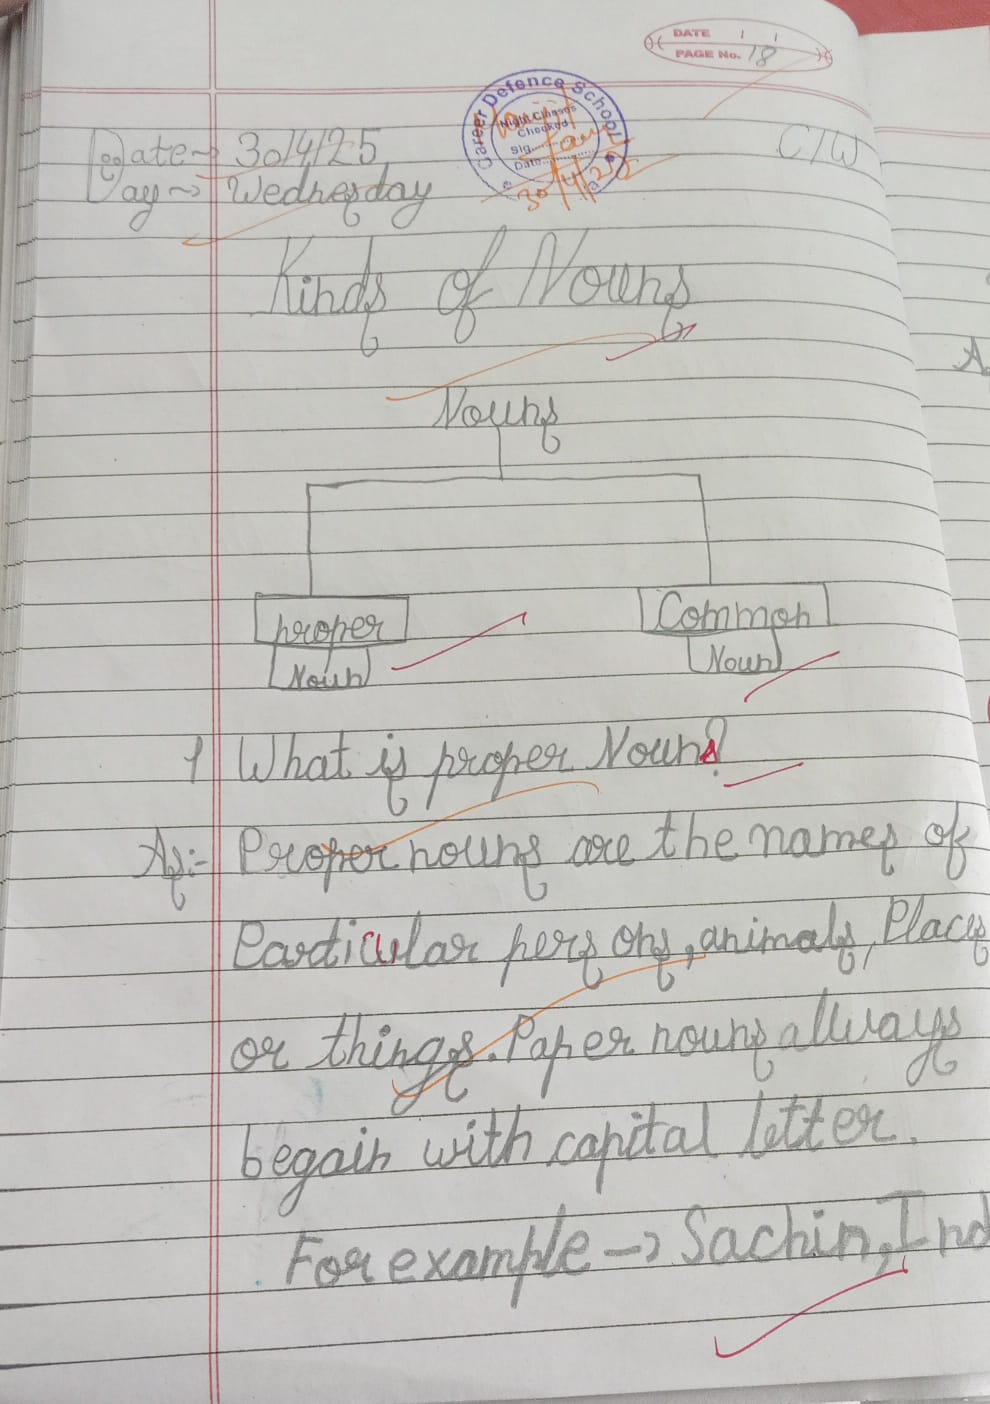 DATE / /
PAGE No. 18
Career Defence School
Night Classes
Checked
Sig.
Date
30/4/25
Date → 30/4/25
C/W
Day → Wednesday
Kinds of Nouns
Nouns
proper
Common
Noun
Noun
1 What is proper Noun?
As:- Proper nouns are the names of
Particular persons, animals, Places
or things. Paper nouns allways
begain with capital letter.
For example → Sachin, Ind
A